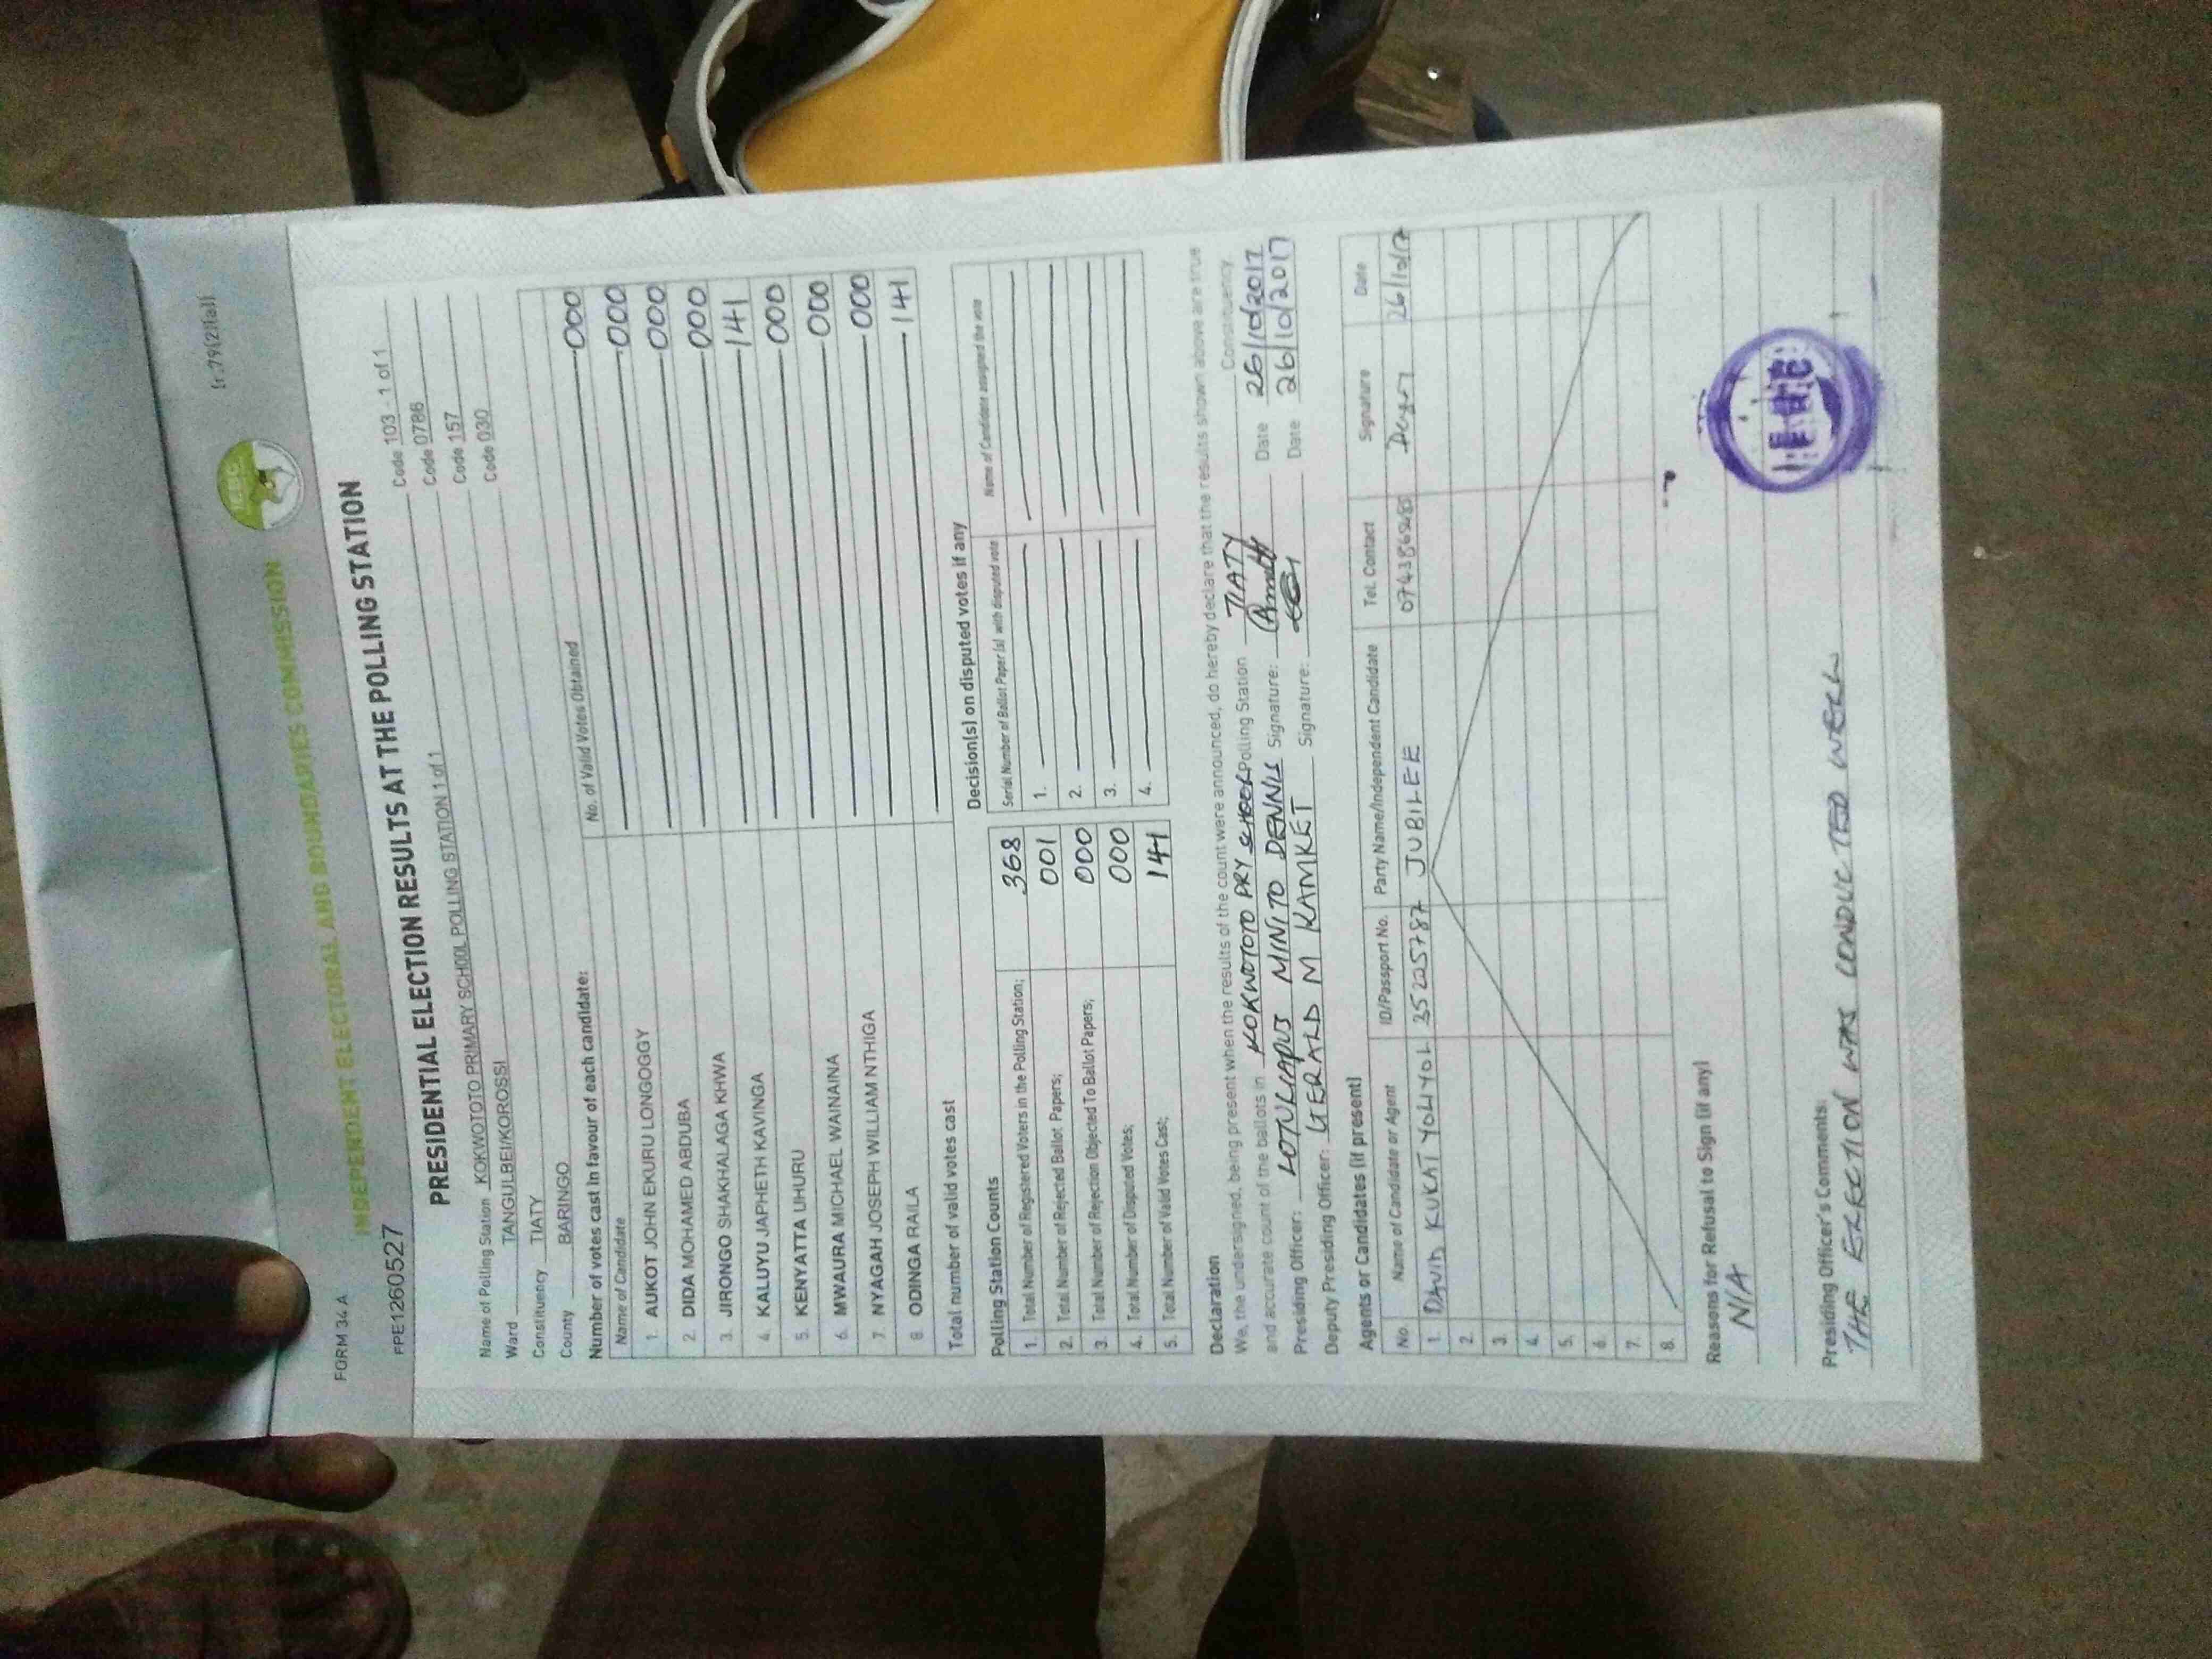 FORM 34 A
(r.79(2)(a))
IEBC
INDEPENDENT ELECTORAL AND BOUNDARIES COMMISSION
PPE1260527
PRESIDENTIAL ELECTION RESULTS AT THE POLLING STATION
Name of Polling Station KOKWOTOTO PRIMARY SCHOOL POLLING STATION 1 of 1 Code 103 1 of 1
Ward TANGULBEI/KOROSSI Code 0786
Constituency TIATY Code 157
County BARINGO Code 030
Number of votes cast in favour of each candidate:
Name of Candidate No. of Valid Votes Obtained
1. AUKOT JOHN EKURU LONGOGGY 000
2. DIDA MOHAMED ABDUBA 000
3. JIRONGO SHAKHALAGA KHWA 000
4. KALUYU JAPHETH KAVINGA 000
5. KENYATTA UHURU 141
6. MWAURA MICHAEL WAINAINA 000
7. NYAGAH JOSEPH WILLIAM NTHIGA 000
8. ODINGA RAILA 000
Total number of valid votes cast 141
Polling Station Counts
1. Total Number of Registered Voters in the Polling Station; 368
2. Total Number of Rejected Ballot Papers; 001
3. Total Number of Rejection Objected To Ballot Papers; 000
4. Total Number of Disputed Votes; 000
5. Total Number of Valid Votes Cast; 141
Decision(s) on disputed votes if any
Serial Number of Ballot Paper (s) with disputed vote Name of Candidate assigned the vote
1.
2.
3.
4.
Declaration
We, the undersigned, being present when the results of the count were announced, do hereby declare that the results shown above are true
and accurate count of the ballots in KOKWOTOTO PRY SCHOOL Polling Station TIATY Constituency
Presiding Officer: LOTULIAPUS MINITO DENNIS Signature: Date 26/10/2017
Deputy Presiding Officer: GERALD M KAMKET Signature: Date 26/10/2017
Agents or Candidates (if present)
No. Name of Candidate or Agent ID/Passport No. Party Name/Independent Candidate Tel. Contact Signature Date
1. DAVID KUKAT YOLIYOL 35225787 JUBILEE 26/10/17
2.
3.
4.
5.
6.
7.
8.
Reasons for Refusal to Sign (if any)
N/A
Presiding Officer's Comments:
THE ERECTION WAS CONDUCTED WELL
IEBC